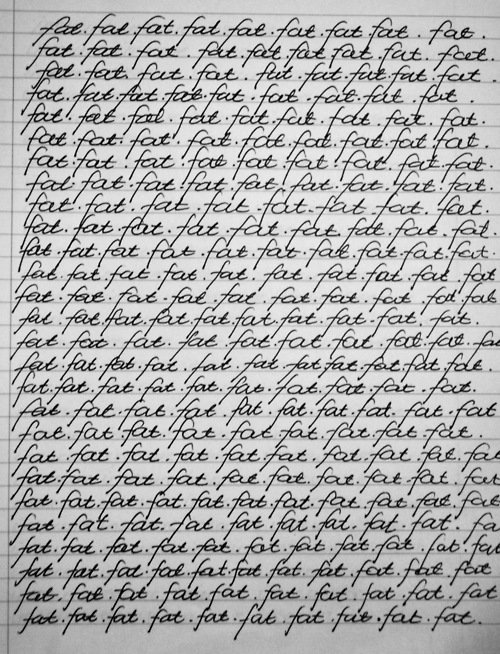 fat. fat. fat. fat. fat. fat. fat. fat. fat.
fat. fat. fat. fat. fat. fat. fat. fat. fat.
fat. fat. fat. fat. fat. fat. fat. fat. fat.
fat. fat. fat. fat. fat. fat. fat. fat. fat.
fat. fat. fat. fat. fat. fat. fat. fat. fat.
fat. fat. fat. fat. fat. fat. fat. fat. fat.
fat. fat. fat. fat. fat. fat. fat. fat. fat.
fat. fat. fat. fat. fat. fat. fat. fat. fat.
fat. fat. fat. fat. fat. fat. fat. fat.
fat. fat. fat. fat. fat. fat. fat. fat. fat.
fat. fat. fat. fat. fat. fat. fat. fat. fat. fat.
fat. fat. fat. fat. fat. fat. fat. fat. fat. fat
fat. fat. fat. fat. fat. fat. fat. fat. fat. fat
fat. fat. fat. fat. fat. fat. fat. fat. fat. fat.
fat. fat. fat. fat. fat. fat. fat. fat. fat. fat. fa
fat. fat. fat. fat. fat. fat. fat. fat. fat. fat. fat.
fat. fat. fat. fat. fat. fat. fat. fat. fat. fat.
fat. fat. fat. fat. fat. fat. fat. fat. fat. fat
fat. fat. fat. fat. fat. fat. fat. fat. fat.
fat. fat. fat. fat. fat. fat. fat. fat. fat. fat
fat. fat. fat. fat. fat. fat. fat. fat. fat. fat
fat. fat. fat. fat. fat. fat. fat. fat. fat. fat. fat
fat. fat. fat. fat. fat. fat. fat. fat. fat. fa
fat. fat. fat. fat. fat. fat. fat. fat. fat. fat. fat
fat. fat. fat. fat. fat. fat. fat. fat. fat. fat. fat
fat. fat. fat. fat. fat. fat. fat. fat. fat. fat
fat. fat. fat. fat. fat. fat. fat. fat. fat. fat.